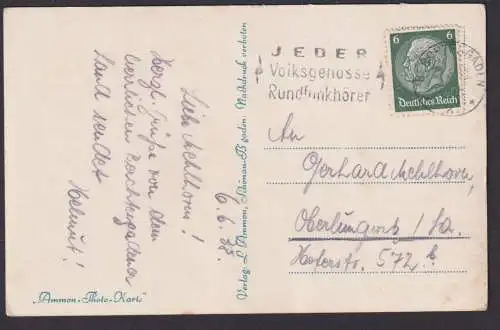 Liebe Mehlhorn!
6. 6. 38.
Herzl. Grüße von dem
herrlichen Berchtesgadener
Land sendet
Helmut!
"Ammon-Photo-Karte"
Verlag: L. Ammon, Schönau-B'gaden. Nachdruck verboten
JEDER
Volksgenosse
Rundfunkhörer
6
Deutsches Reich
An
Gerhard Mehlhorn
Oberlungwitz / Sa.
Hoferstr. 572 b